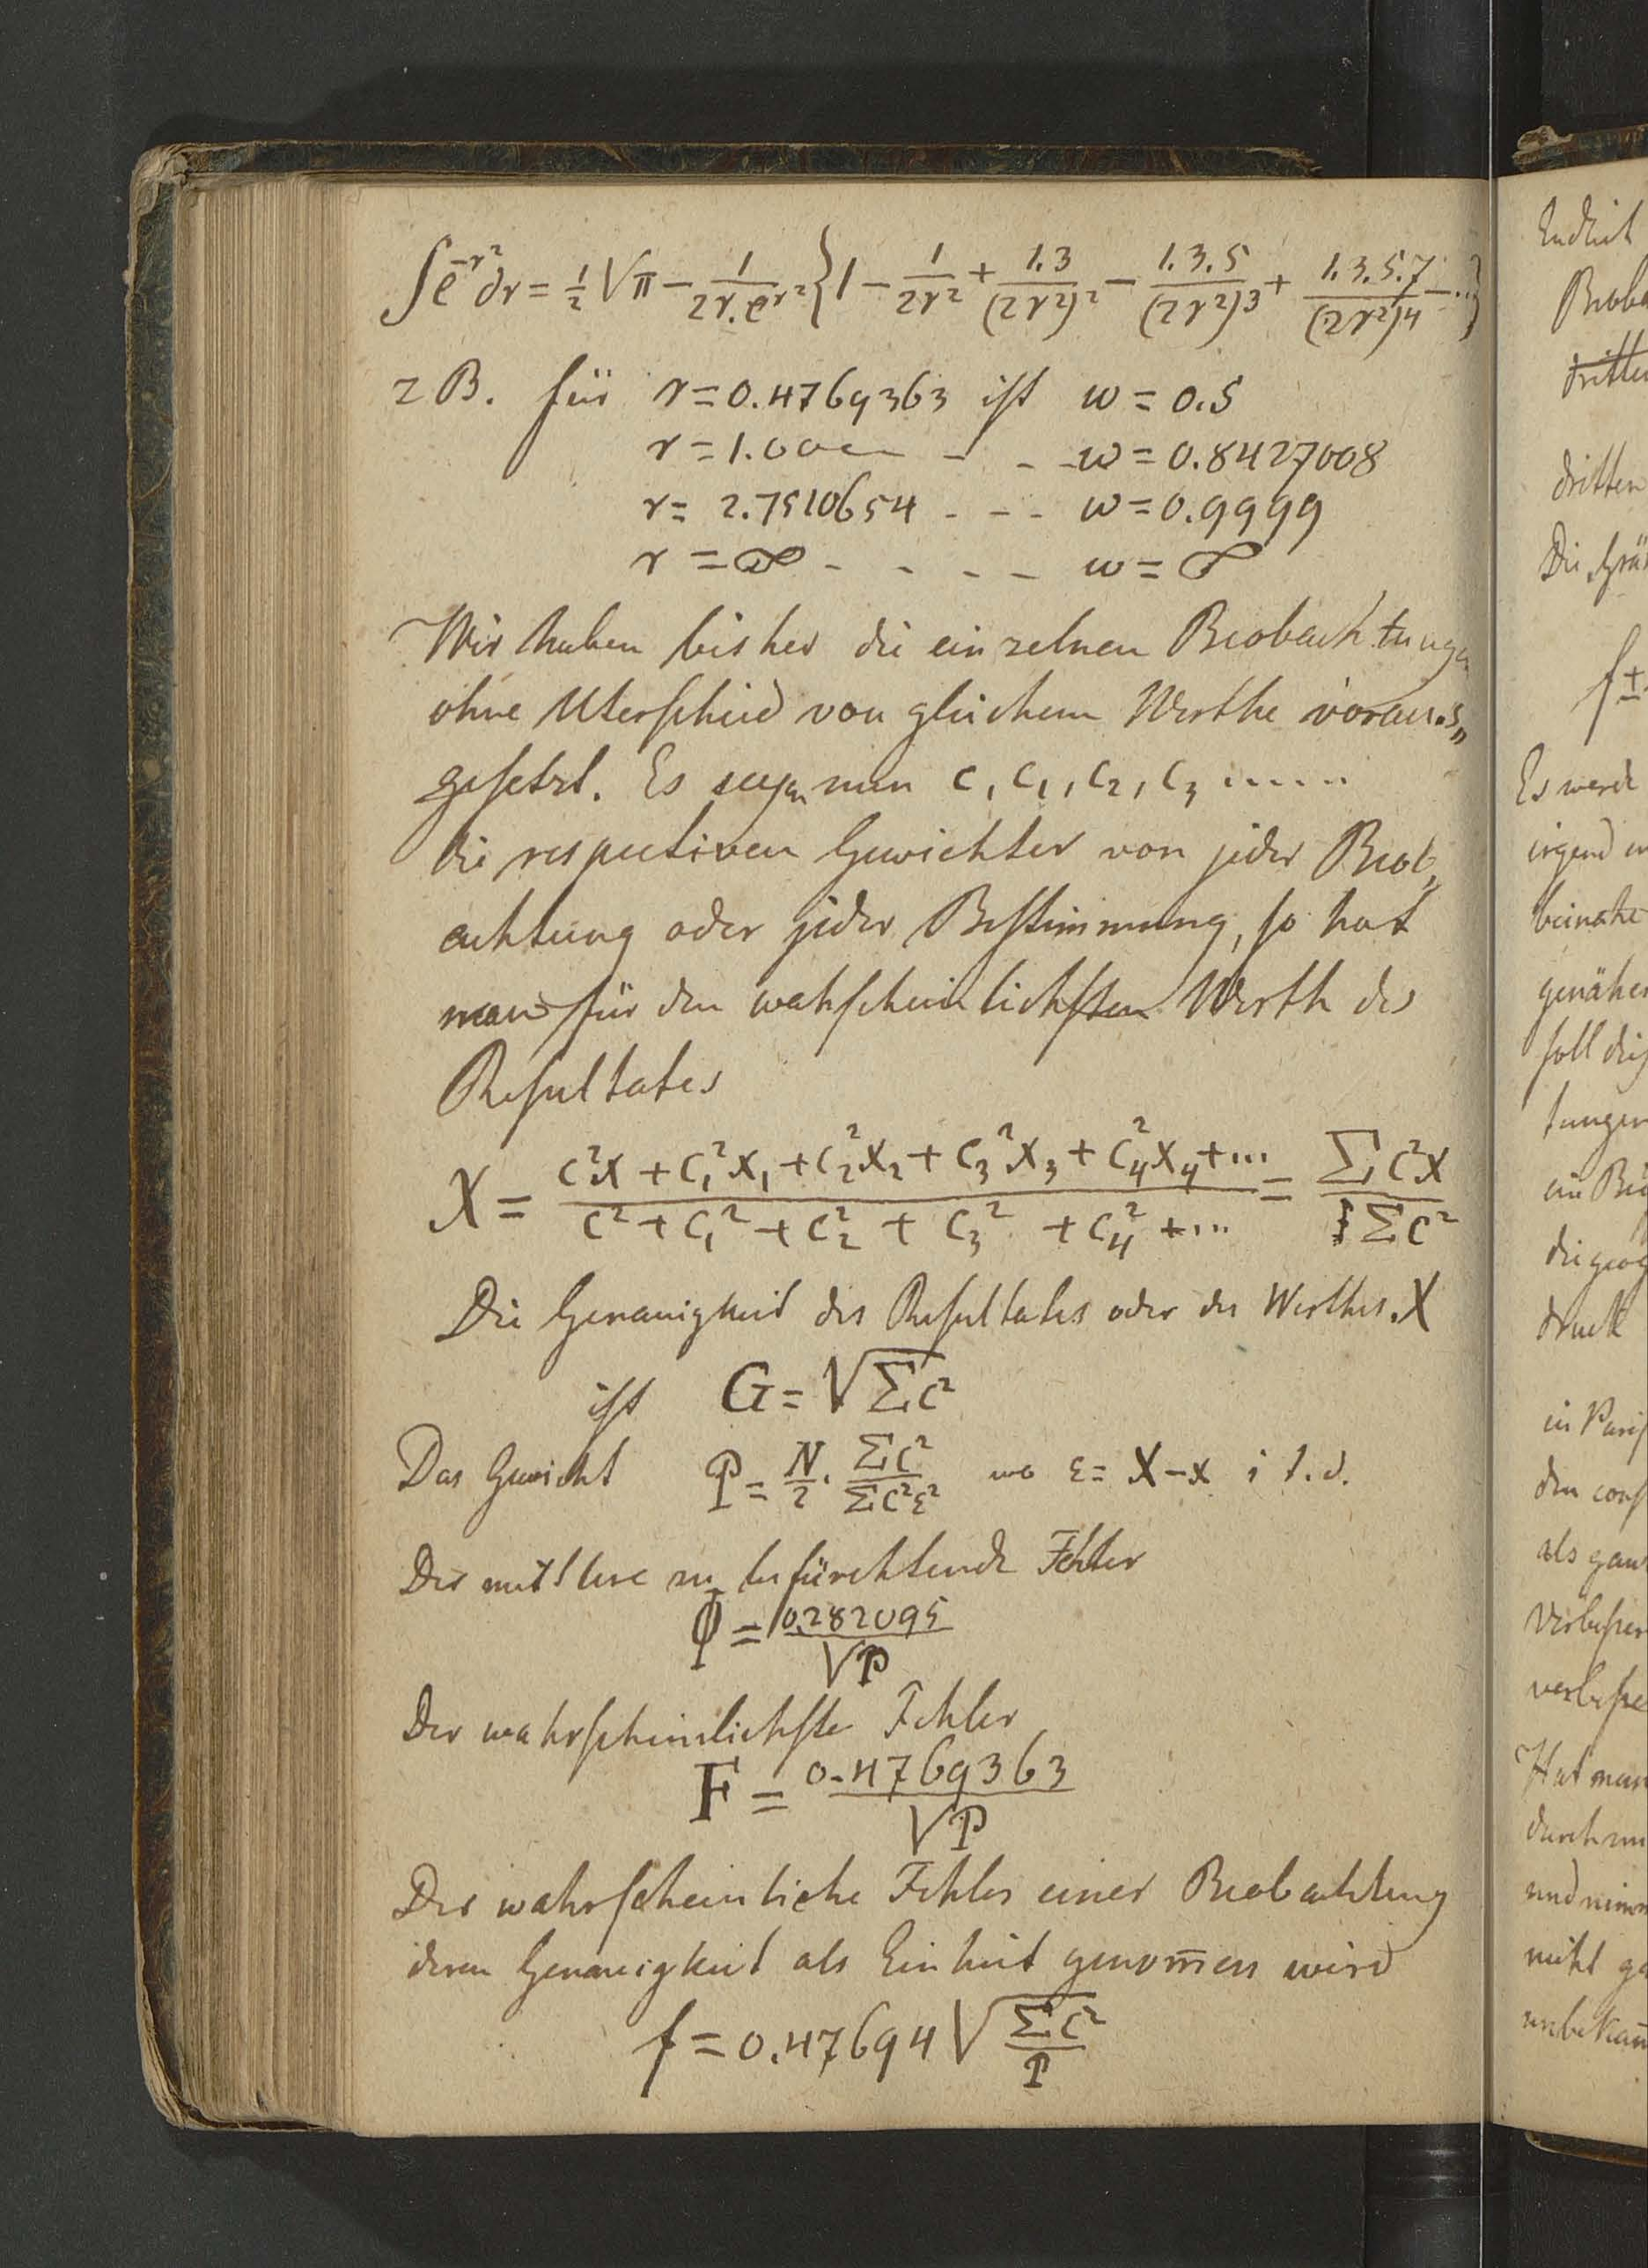 ∫e^{-r²}dr = ½√π − 1/(2r.e^{r²}) {1 − 1/(2r²) + 1.3/(2r²)² − 1.3.5/(2r²)³ + 1.3.5.7/(2r²)⁴ − ...}
z B. für r = 0.4769363 ist w = 0.5
r = 1.000 - - - w = 0.8427008
r = 2.7510654 - - - w = 0.9999
r = ∞ - - - - w = ∞
Wir haben bisher die einzelnen Beobachtungen
ohne Uterschied von gleichem Werthe voraus„
gesetzt. Es seyen nun c, c₁, c₂, c₃ .....
die respectiven Gewichter von jeder Beob„
achtung oder jeder Bestimmung, so hat
man für den wahscheinlichsten Werth des
Resultates
X = (c²x + c₁²x₁ + c₂²x₂ + c₃²x₃ + c₄²x₄ + ...)/(c² + c₁² + c₂² + c₃² + c₄² + ...) = Σc²x/Σc²
Die Genauigkeit des Resultates oder des Werthes X
ist G = √Σc²
Das Gewicht P = N/2 . Σc²/Σc²ε² wo ε = X − x i t. d.
Der mittlere zu befürchtende Fehler
φ = 0.282095/√P
Der wahrscheinlichste Fehler
F = 0.4769363/√P
Der wahrscheinliche Fehler einer Beobachtung
deren Genauigkeit als Einheit genom̅en wird
f = 0.47694 √(Σc²/P)
Endlich
dritten
dritten
f ±
Es werde
irgend
beinahe
soll
druck
als
Hat man
und
nicht